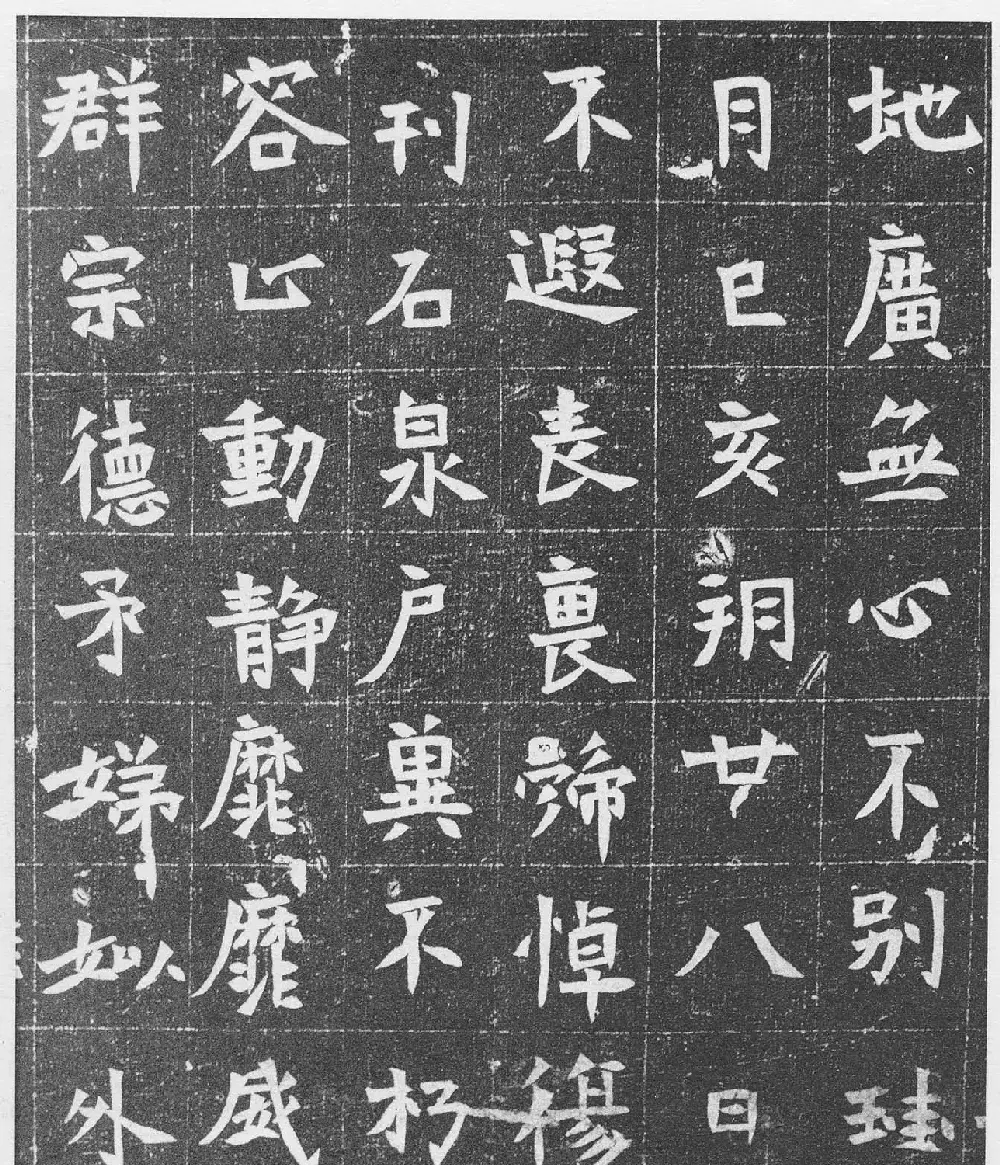 地廣無心不別珪
月己亥朔廿八日
不遐表裏悼
刊石泉戶冀不朽
容止動靜靡靡威
群宗德矛娣姒外